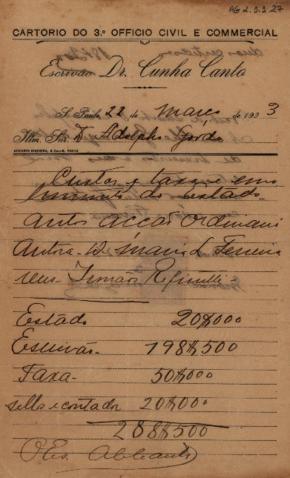 AG 2.5.3.27
CARTORIO DO 3.º OFFICIO CIVIL E COMMERCIAL
Escrivão Dr. Cunha Canto
S. Paulo, 22 de Março 1903
Illmo. Snr. Dr. Adolpho Gordo
Custas e taxa
do Estado
autos acção ordinaria
Autora D. Maria L. Ferreira
reus Irmãos Refinetti
Estado 20$000
Escrivão 198$500
Taxa 50$000
sello e contador 20$000
288$500